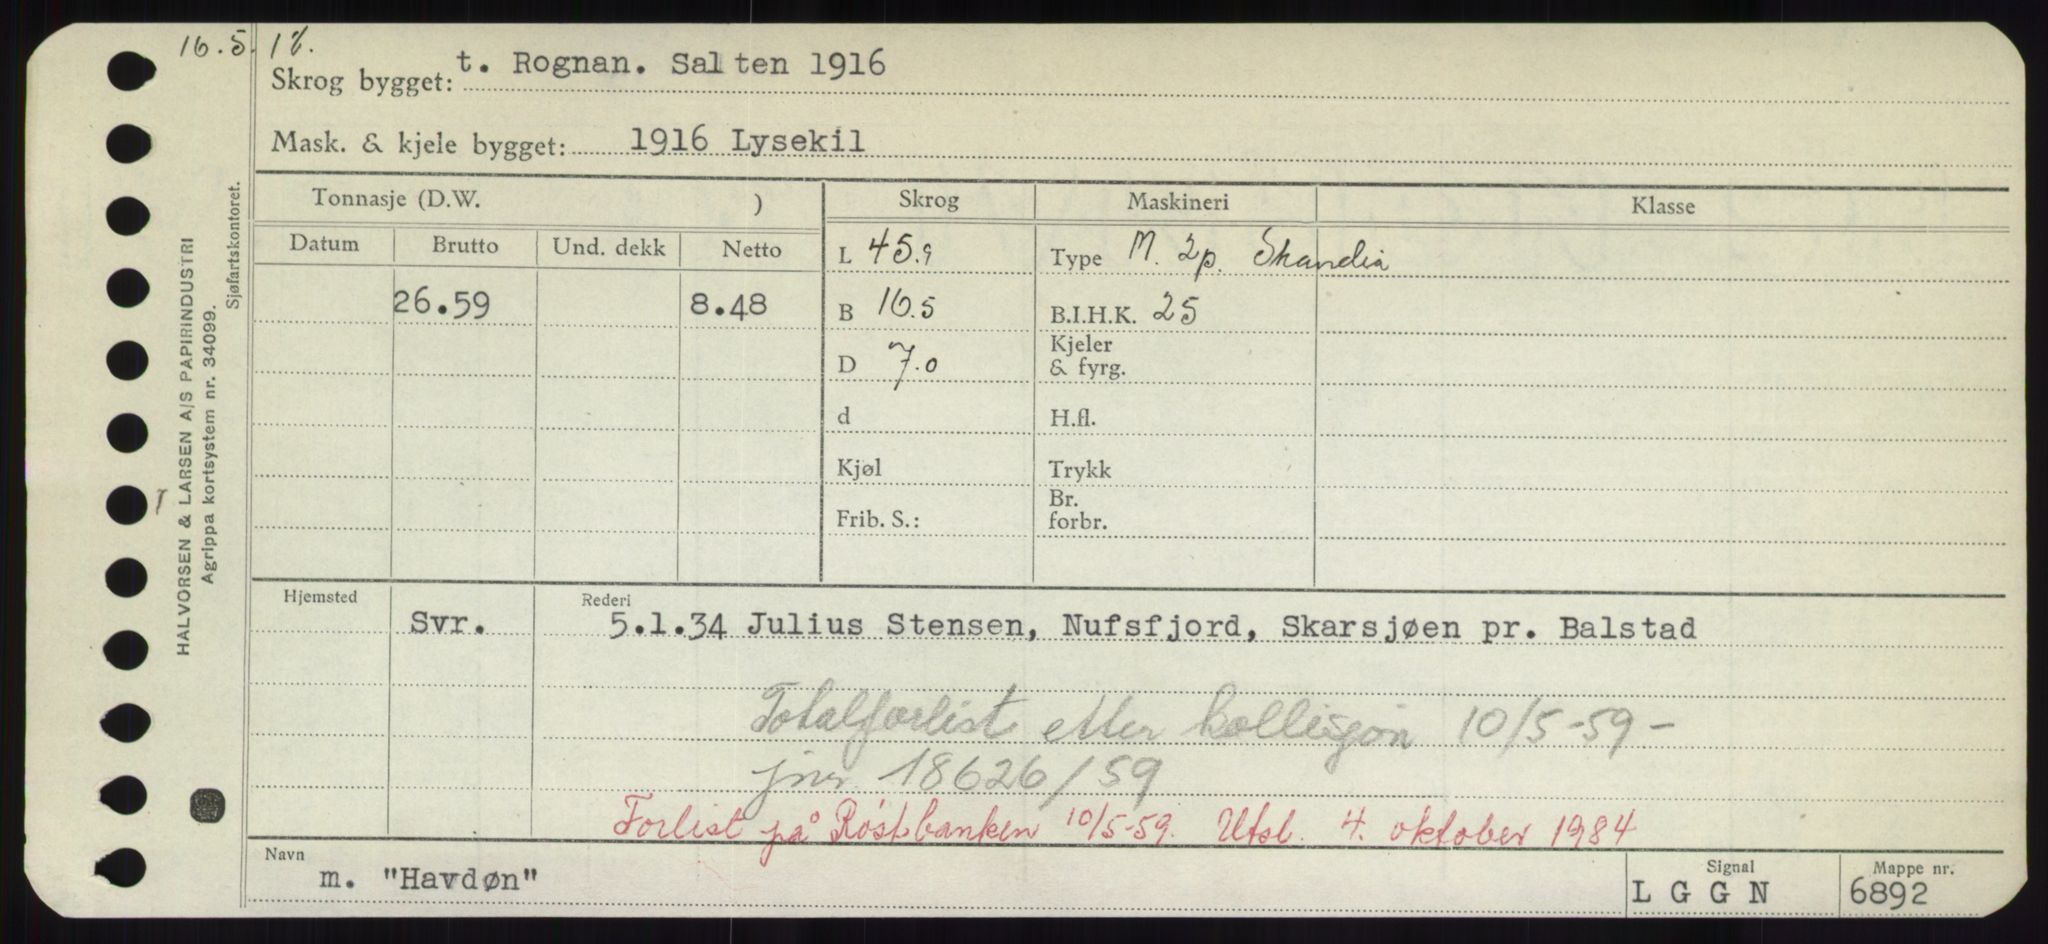 16.5.18.
Skrog bygget: t. Rognan. Salten 1916
Mask. & kjele bygget: 1916 Lysekil
Tonnasje (D.W. ) Skrog Maskineri Klasse
Datum Brutto Und. dekk Netto L 45.9 Type M. 2p. Skandia
26.59 8.48 B 16.5 B.I.H.K. 25
D 7.0 Kjeler
& fyrg.
d H.fl.
Kjøl Trykk
Frib. S.: Br.
forbr.
Hjemsted Rederi
Svr. 5.1.34 Julius Stensen, Nufsfjord, Skarsjøen pr. Balstad
Totalforlist etter kollisjon 10/5-59-
jnr 18626/59
Forlist på Røstbanken 10/5-59. Utsl. 4. oktober 1984
Navn Signal Mappe nr.
m. "Havdøn" L G G N 6892
HALVORSEN & LARSEN A/S PAPIRINDUSTRI
Agrippa kortsystem nr. 34099.
Sjøfartskontoret.